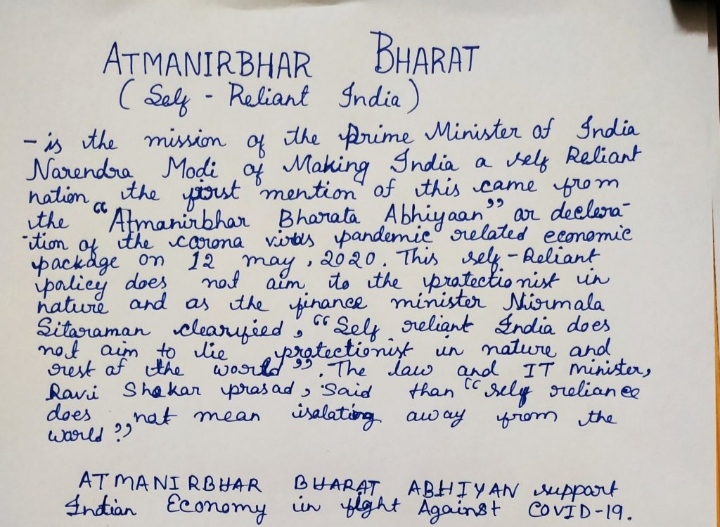 ATMANIRBHAR BHARAT
( Self - Reliant India )
- is the mission of the Prime Minister of India
Narendra Modi of Making India a self Reliant
nation the first mention of this came from
the "Atmanirbhar Bharata Abhiyaan" or declera-
-tion of the corona virus pandemic related economic
package on 12 may, 2020. This self-Reliant
policy does not aim to the protectionist in
nature and as the finance minister Nirmala
Sitaraman clearyfied, "Self reliant India does
not aim to lie protectionist in nature and
rest of the world". The law and IT Minister,
Ravi Shekar prasad, Said than "self reliance
does not mean isolating away from the
world"
ATMANIRBHAR BHARAT ABHIYAN support
Indian Economy in fight Against COVID-19.